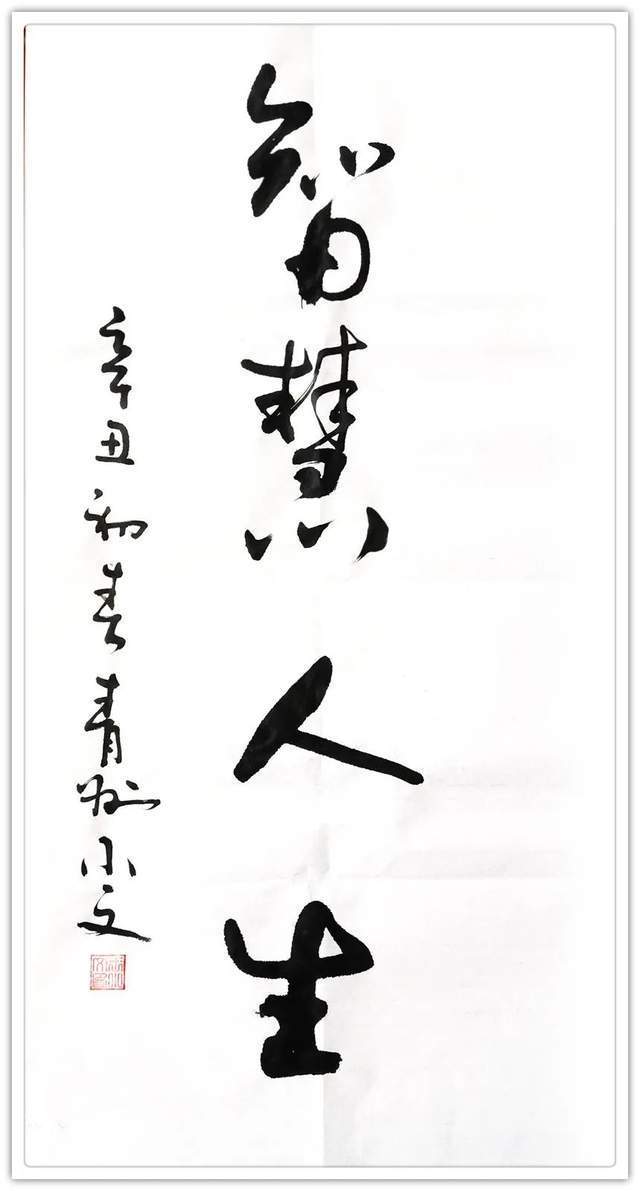 智慧人生
辛丑初春青州小文